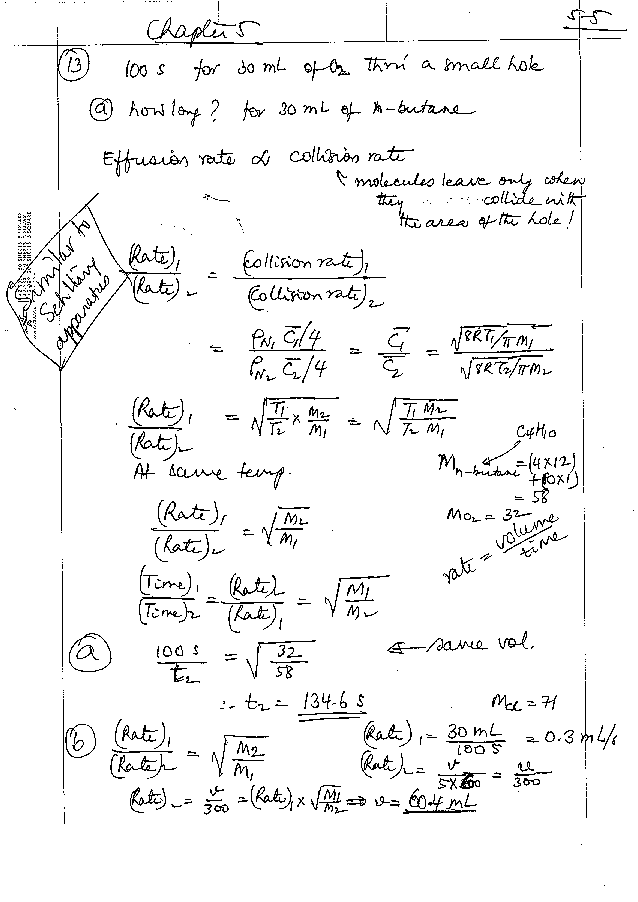 5-5
Chapter 5
(13) 100 s for 30 mL of O2 thru a small hole
(a) how long? for 30 mL of n-butane
Effusion rate α collision rate
↑ molecules leave only when
they ..... collide with
the area of the hole!
Similar to
apparatus
(Rate)1/(Rate)2 = (Collision rate)1/(Collision rate)2
= ρN1 C̄1/4 / ρN2 C̄2/4 = C̄1/C̄2 = √8RT1/πM1 / √8RT2/πM2
(Rate)1/(Rate)2 = √(T1/T2 × M2/M1) = √(T1 M2/T2 M1)
At same temp.
C4H10
Mn-butane = (4×12)
+(10×1)
= 58
MO2 = 32
rate = volume/time
(Rate)1/(Rate)2 = √(M2/M1)
(Time)1/(Time)2 = (Rate)2/(Rate)1 = √(M1/M2)
(a) 100 s/t2 = √(32/58) ← same vol.
∴ t2 = 134.6 s
MCl = 71
(b) (Rate)1/(Rate)2 = √(M2/M1) (Rate)1 = 30 mL/100 s = 0.3 mL/s
(Rate)2 = v/5×60 = v/300
(Rate)2 = v/300 = (Rate)1 × √(M1/M2) ⇒ v = 60.4 mL